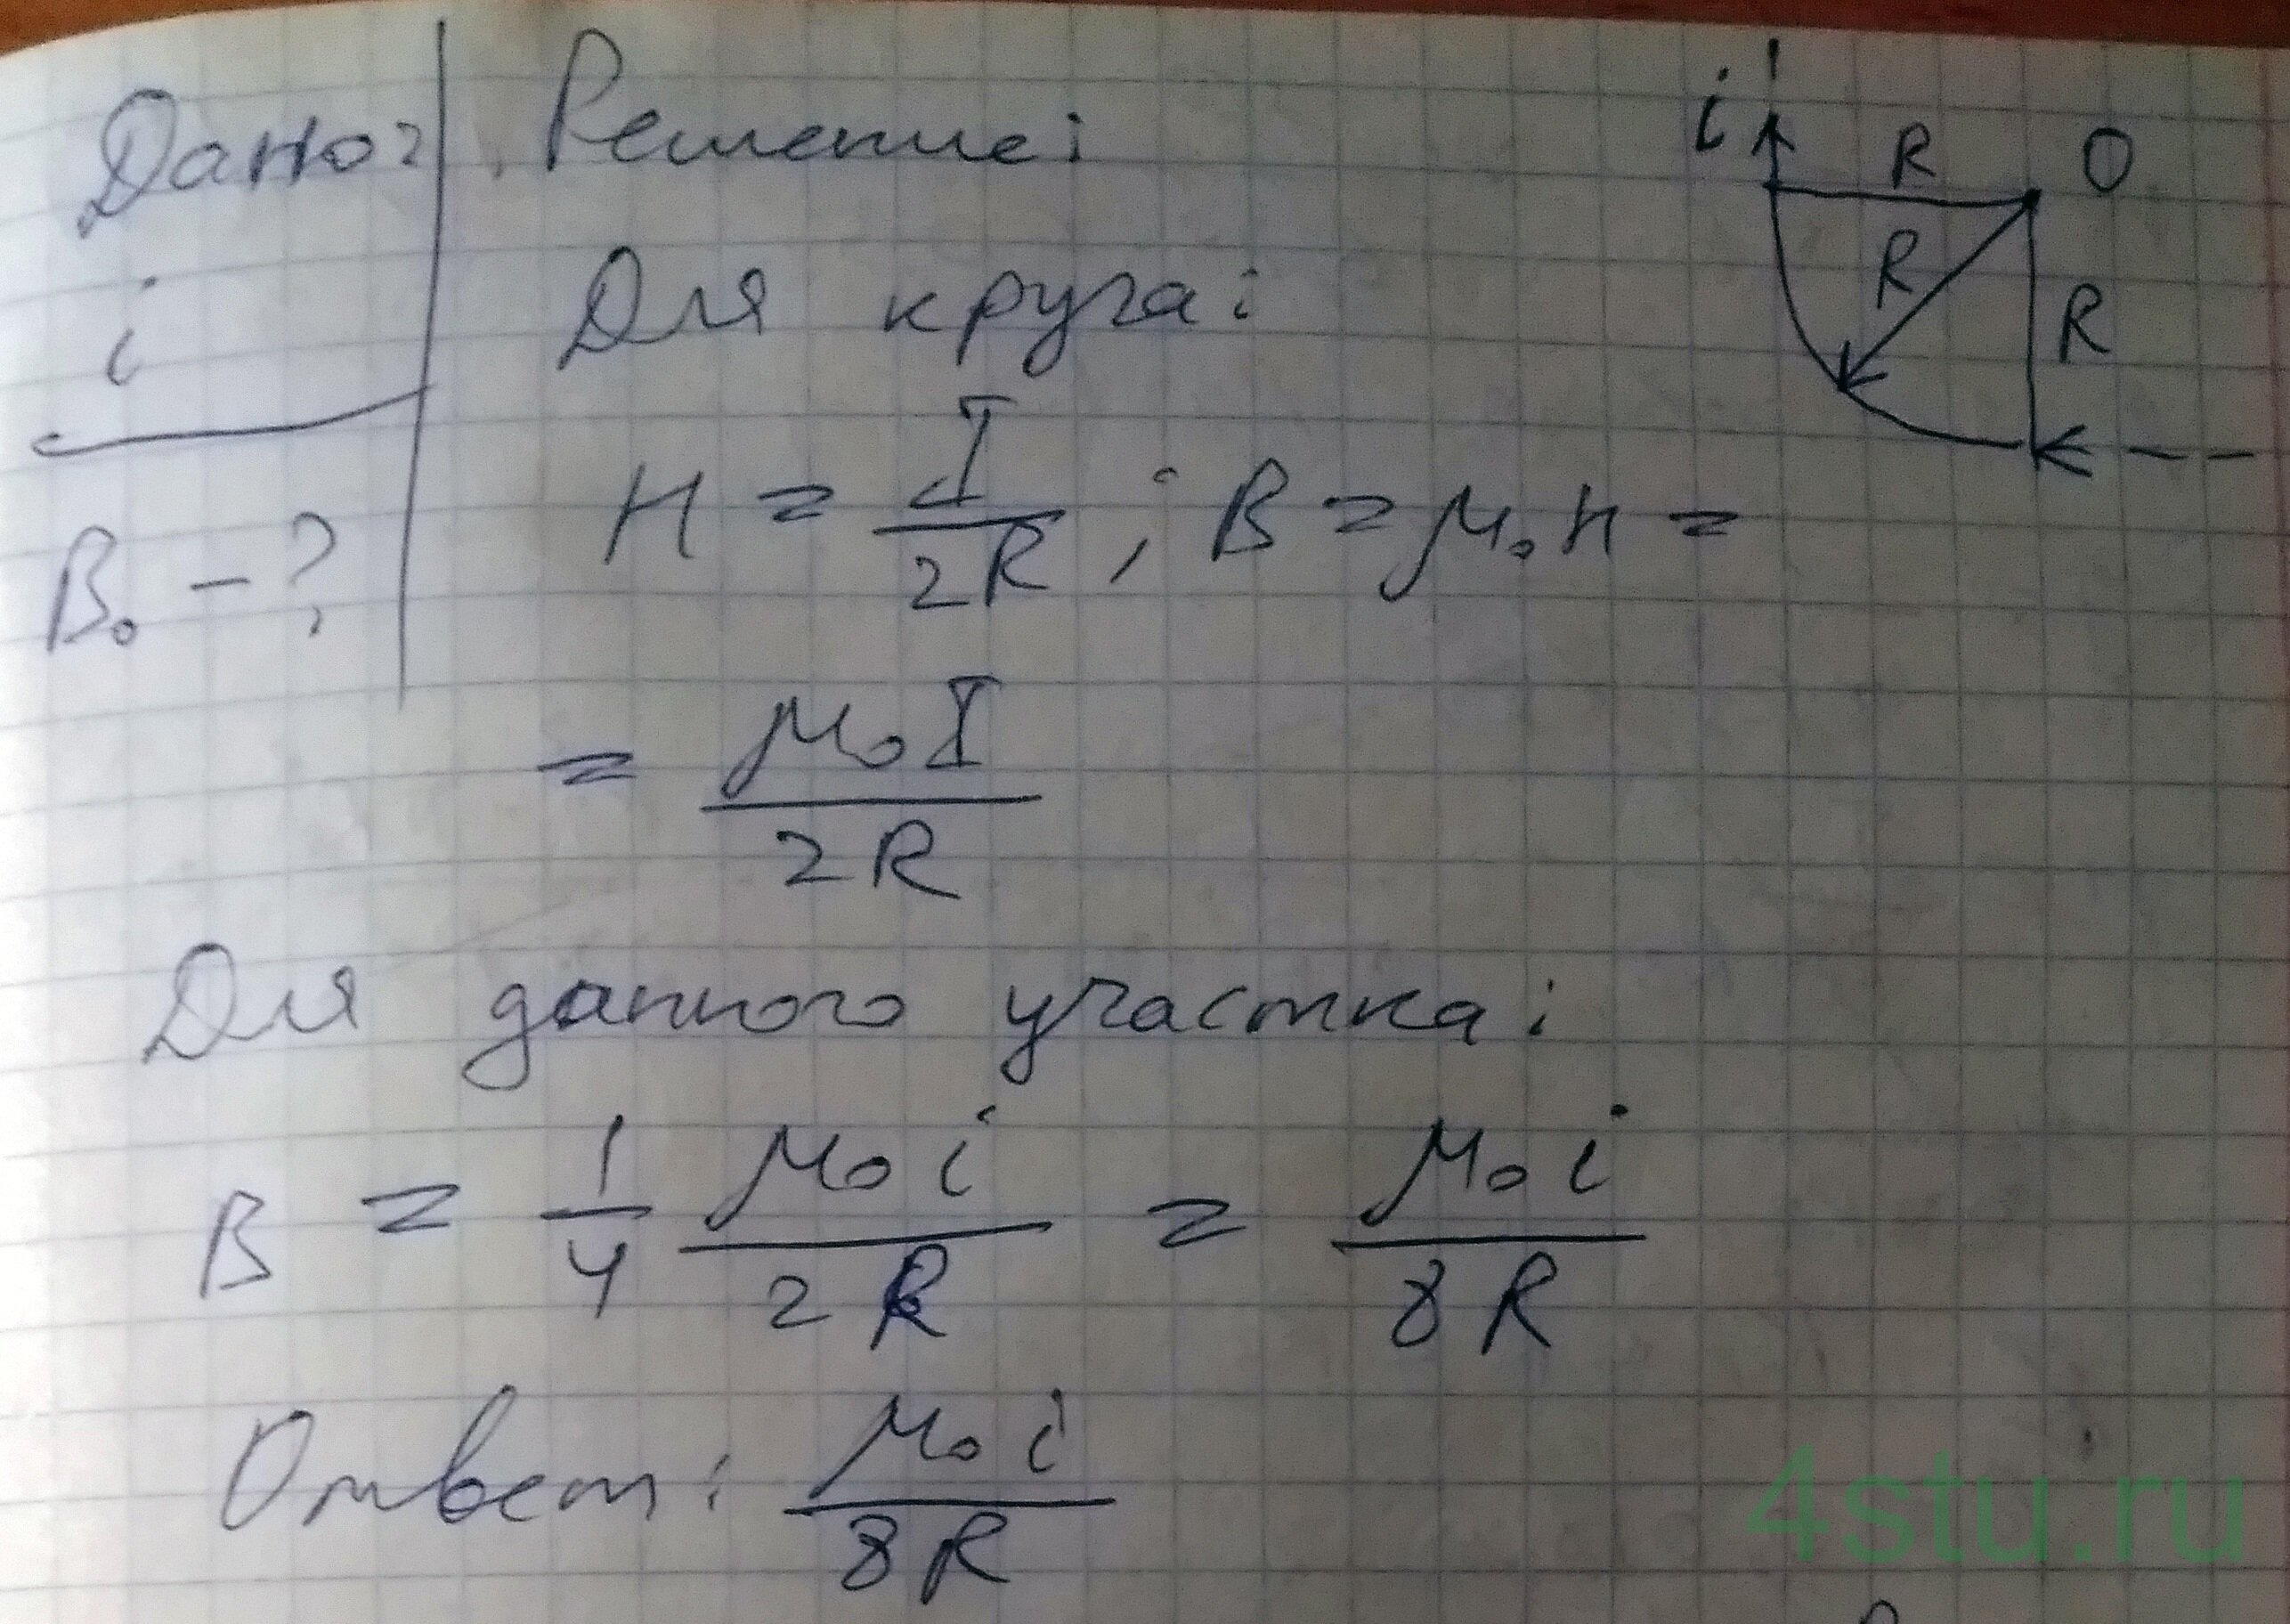 Дано: Решение:
i
B₀ - ?
Для круга:
H = I/2R ; B = μ₀H =
= μ₀I/2R
Для данного участка:
B = 1/4 μ₀i/2R = μ₀i/8R
Ответ: μ₀i/8R
i R O
R R
4stu.ru